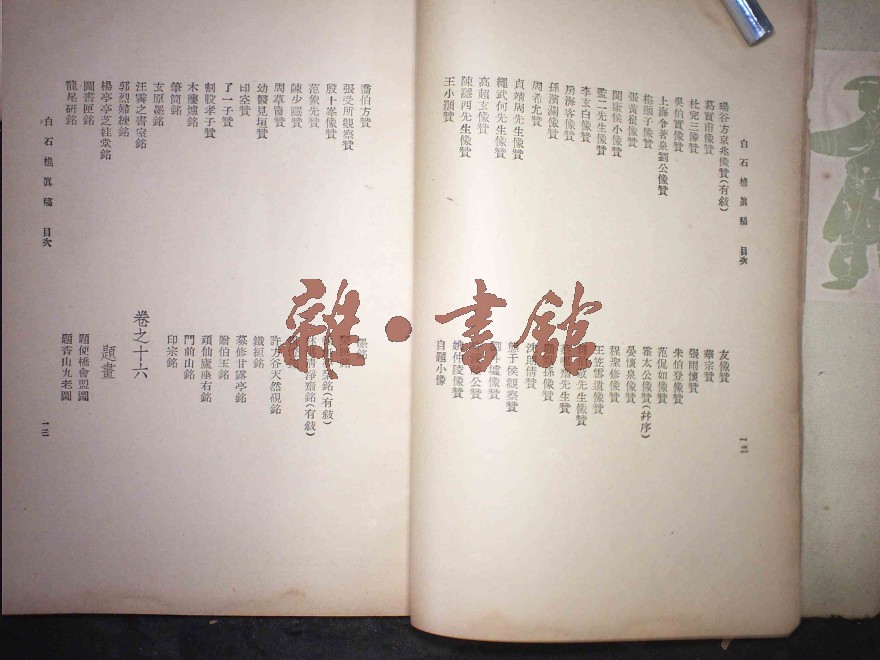 白石樵眞稿 目次
暘谷方京兆像贊(有敍)
葛實甫像贊
杜完三像贊
吳伯實像贊
上海令著泉劉公像贊
梅顛子像贊
張黃粱像贊
閔康侯小像贊
監二先生像贊
李玄白像贊
房海客像贊
孫濱湖像贊
周希允贊
貞靖周先生像贊
繩武何先生像贊
高超玄像贊
陳羅西先生像贊
王小顚贊
友像贊
華宗贊
張雨懷贊
朱伯登像贊
范侃如像贊
霍太公像贊(幷序)
晏懷泉像贊
程聖修像贊
王笠雪道像贊
先生像贊
先生贊
孫像贊
倩贊
于侯觀察贊
墟像贊
公贊
姚仲陵像贊
自題小像
一二
潘伯方贊
張受所觀察贊
殷十峯像贊
范象先贊
陳少蘊贊
周草窗贊
幼醫見垣贊
印空贊
了一子贊
割股孝子贊
木癭爐銘
筆筒銘
玄原墨銘
汪霽之書室銘
郭烈婦練銘
楊亭亭芝娃堂銘
圖書匣銘
龍尾硏銘
銘(有敍)
淸淨齋銘(有敍)
許方谷天然硯銘
鐵絙銘
蔡修甘露亭銘
贈伯玉銘
頑仙廬座右銘
門前山銘
印宗銘
卷之十六
題畫
題便橋會盟圖
題香山九老圖
白石樵眞稿 目次
一三
雜·書館